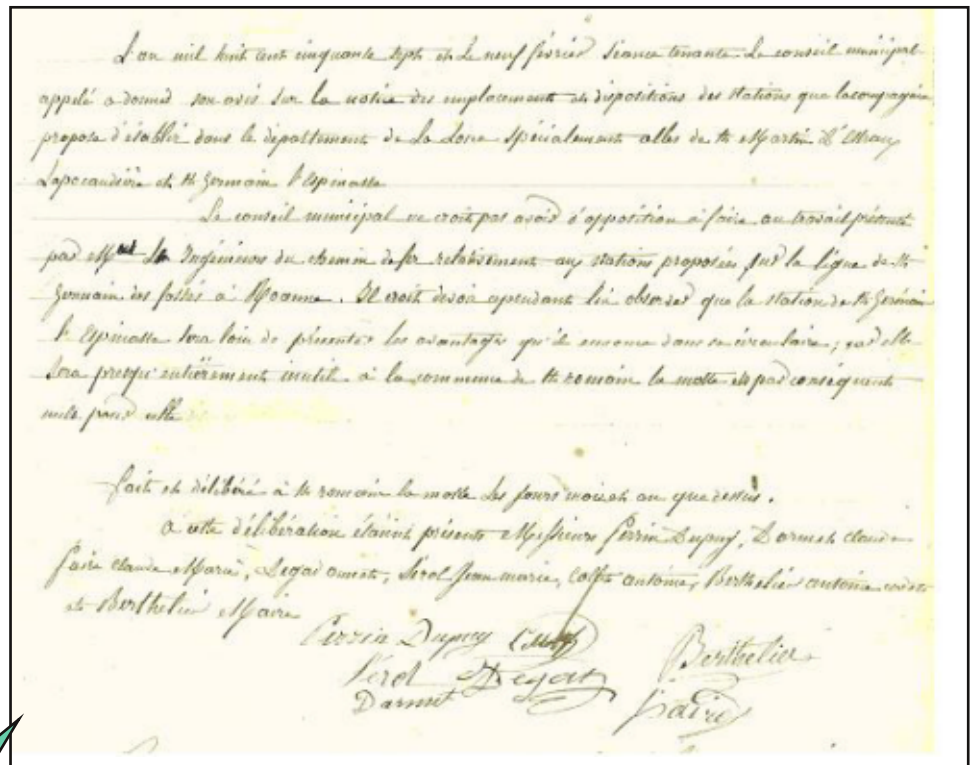 L'an mil huit cent cinquante sept et le neuf février séance tenante le conseil municipal
appelé a donner son avis sur la notice des emplacements et dispositions des stations que la compagnie
propose d'établir dans le département de la Loire spécialement celles de St Martin d'Estreaux
Lapacaudière et St Germain l'Espinasse
Le conseil municipal ne croit pas avoir d'opposition à faire au travail présenté
par Mrs les Ingénieurs du chemin de fer relativement aux stations proposées sur la ligne de St
Germain des fossés à Roanne. Il croit devoir cependant observer que la station de St Germain
l'Espinasse sera loin de présenter les avantages qu'il énonce dans sa circulaire; car elle
sera presqu'entièrement inutile à la commune de St romain la motte et par conséquent
nulle pour elle
fait et délibéré à St romain la motte les jours mois et an que dessus.
a cette délibération étaient présents Messieurs Perrin Dupuy, Darmet claude
faire claude Marie, Degas, Sérol Jean marie, Antoine, Berthelier antoine
et Berthelier Maire
Perrin Dupuy
Berthelier
Sérol Degas
Darmet